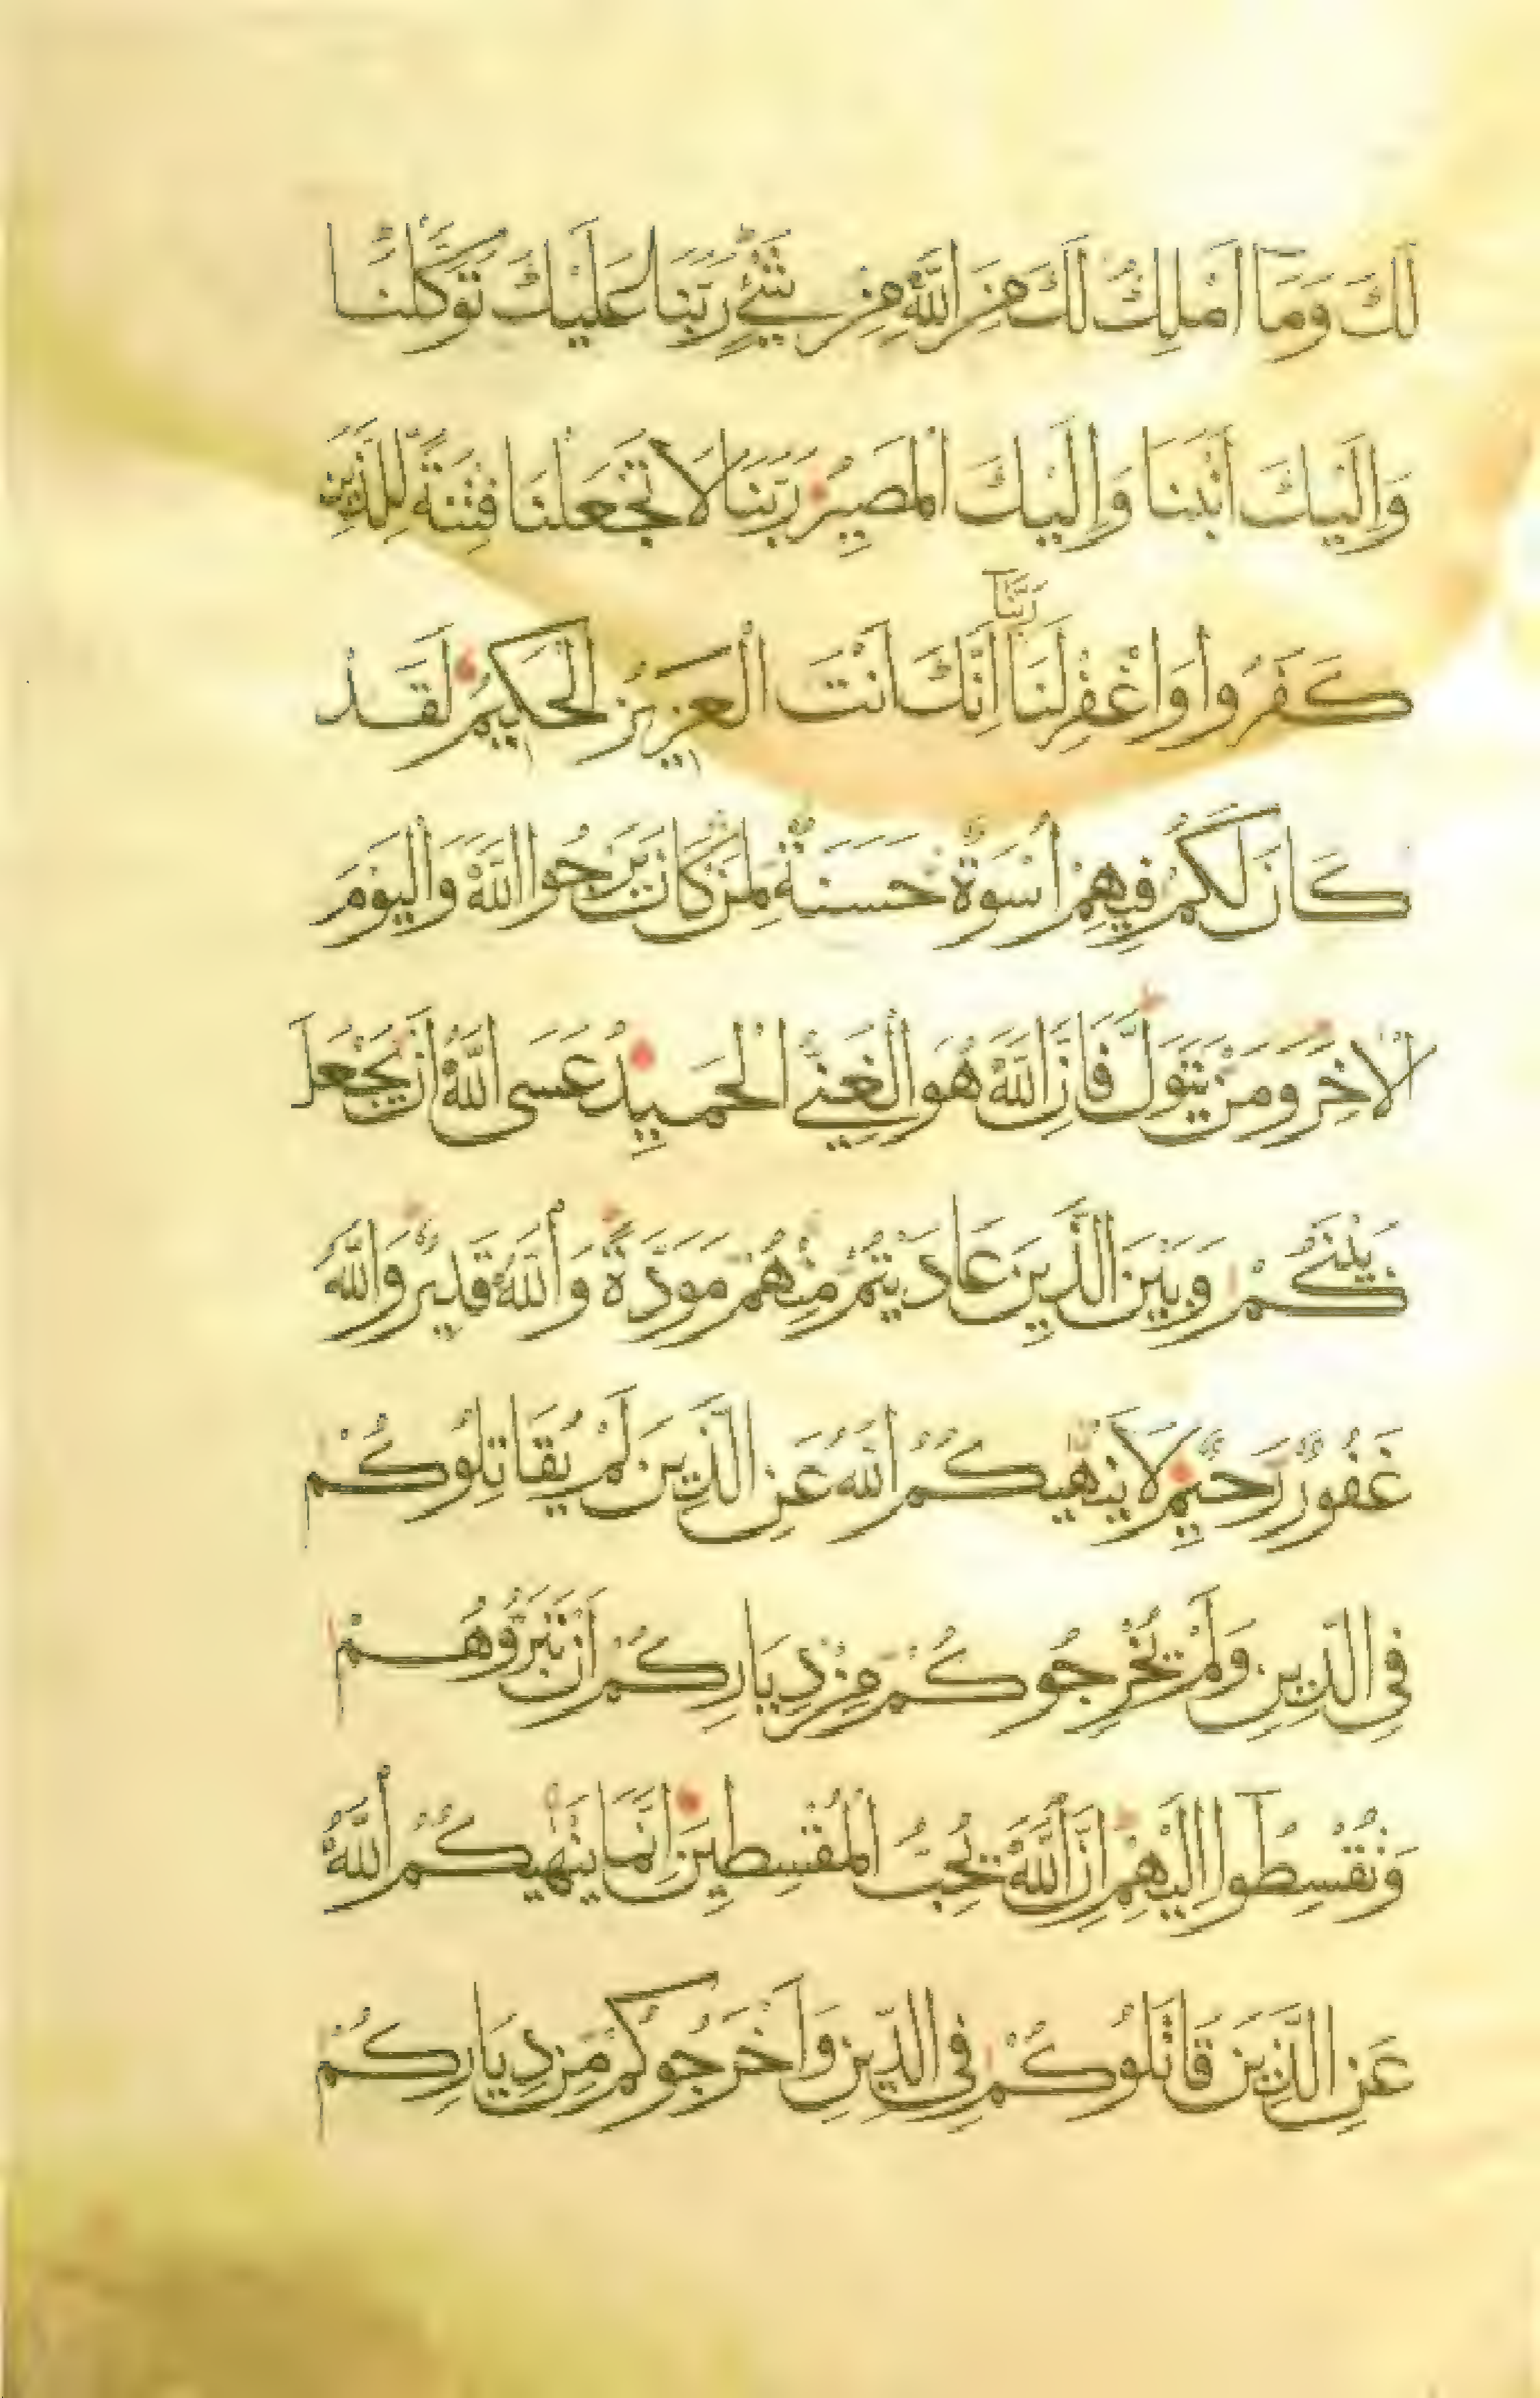 لَكَ وَمَا أَمْلِكُ لَكَ مِنَ اللَّهِ مِنْ شَيْءٍ رَبَّنَا عَلَيْكَ تَوَكَّلْنَا
وَإِلَيْكَ أَنَبْنَا وَإِلَيْكَ الْمَصِيرُ رَبَّنَا لَا تَجْعَلْنَا فِتْنَةً لِلَّذِينَ
كَفَرُوا وَاغْفِرْ لَنَا رَبَّنَا إِنَّكَ أَنْتَ الْعَزِيزُ الْحَكِيمُ لَقَدْ
كَانَ لَكُمْ فِيهِمْ أُسْوَةٌ حَسَنَةٌ لِمَنْ كَانَ يَرْجُوا اللَّهَ وَالْيَوْمَ
الْآخِرَ وَمَنْ يَتَوَلَّ فَإِنَّ اللَّهَ هُوَ الْغَنِيُّ الْحَمِيدُ عَسَى اللَّهُ أَنْ يَجْعَلَ
بَيْنَكُمْ وَبَيْنَ الَّذِينَ عَادَيْتُمْ مِنْهُمْ مَوَدَّةً وَاللَّهُ قَدِيرٌ وَاللَّهُ
غَفُورٌ رَحِيمٌ لَا يَنْهَيكُمُ اللَّهُ عَنِ الَّذِينَ لَمْ يُقَاتِلُوكُمْ
فِي الدِّينِ وَلَمْ يُخْرِجُوكُمْ مِنْ دِيَارِكُمْ أَنْ تَبَرُّوهُمْ
وَتُقْسِطُوا إِلَيْهِمْ إِنَّ اللَّهَ يُحِبُّ الْمُقْسِطِينَ إِنَّمَا يَنْهَيكُمُ اللَّهُ
عَنِ الَّذِينَ قَاتَلُوكُمْ فِي الدِّينِ وَأَخْرَجُوكُمْ مِنْ دِيَارِكُمْ